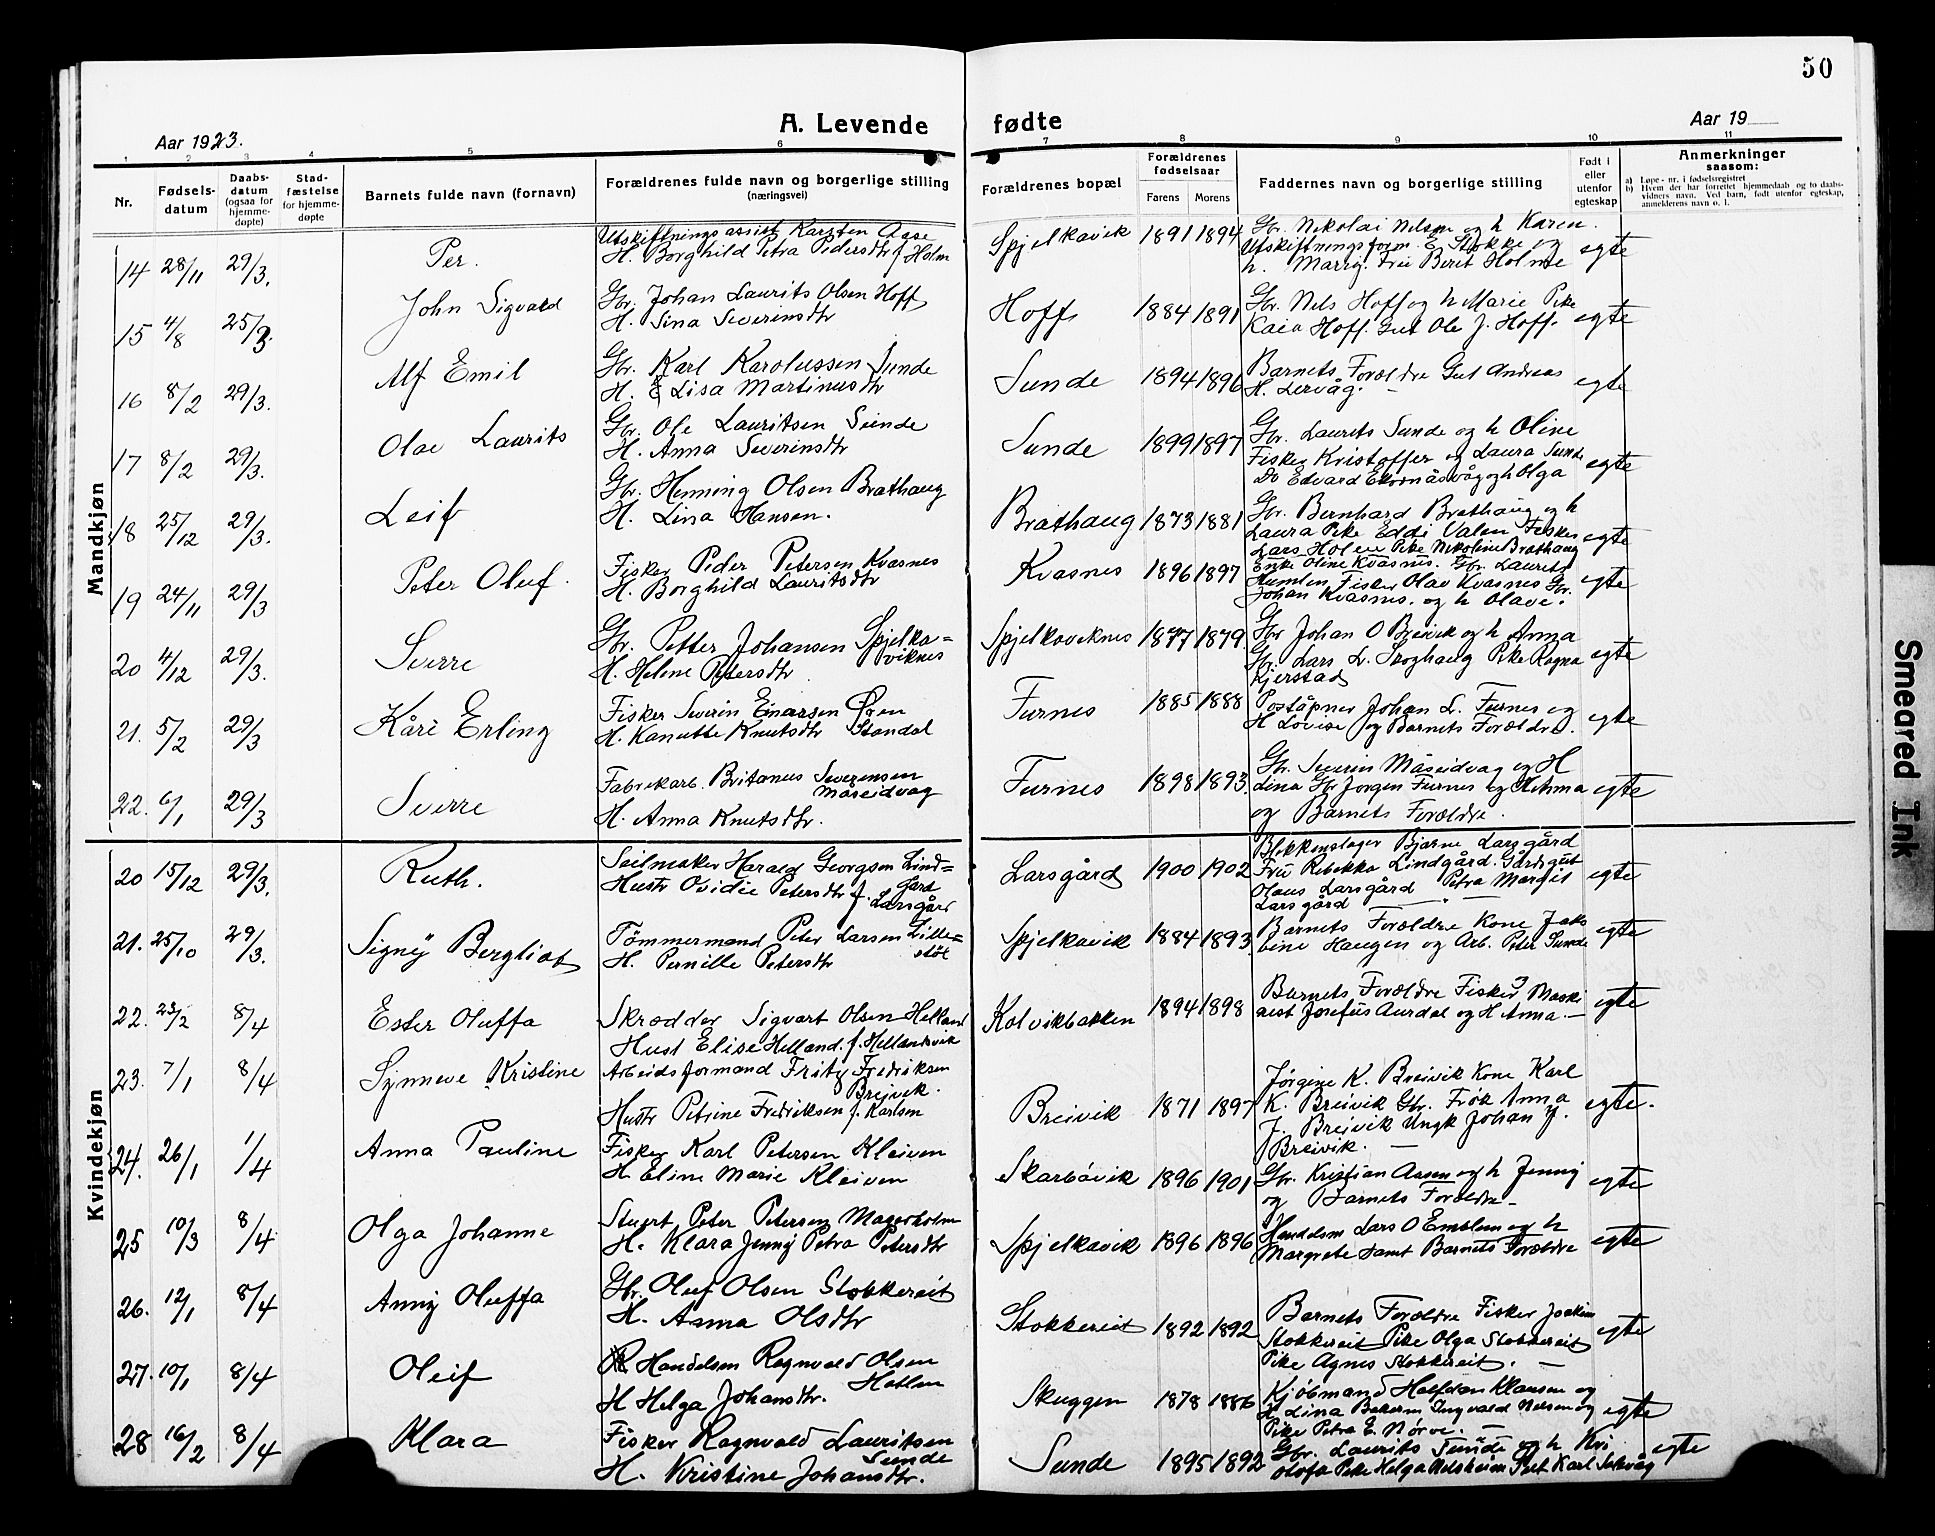 50
Aar 1923.
A. Levende fødte
Aar 19
1 2 3 4 5 6 7 8 9 10 11
Nr.
Fødsels-
datum
Daabs-
datum
(ogsaa for
hjemme-
døpte)
Stad-
fæstelse
for hjemme-
døpte
Barnets fulde navn (fornavn)
Forældrenes fulde navn og borgerlige stilling
(næringsvei)
Forældrenes bopæl
Forældrenes
fødselsaar
Farens Morens
Faddernes navn og borgerlige stilling
Født i
eller
utenfor
egteskap
Anmerkninger
saasom:
a) Løpe-nr. i fødselsregistret
b) Hvem der har forrettet hjemmedaab og to daabs-
vidners navn. Ved barn, født utenfor egteskap,
anmelderens navn o. l.
Mandkjøn
14 28/11 29/3. Per.
Utskiftningsassist Karsten Aase
H. Borghild Petra Pedersdtr f. Holm
Spjelkavik 1891 1894
Gbr. Nikolai Nilsen og h Karen.
Utskiftningsform. E Stokke og
h. Marry. Frü Berit Holme
egte
15 4/8 25/3. John Sigvald
Gbr. Johan Laurits Olsen Hoff
H. Sina Severinsdtr
Hoff 1884 1891
Gbr. Nils Hoff og h Marie Pike
Kaia Hoff. Gut Ole J. Hoff.
egte
16 8/2 29/3. Alf Emil
Gbr. Karl Karolussen Sunde
H. Lisa Martinusdtr
Sunde 1894 1896
Barnets Forældre Gut Andreas
H. Lervåg. —
egte
17 8/2 29/3. Olav Laurits
Gbr. Ole Lauritsen Sunde
H. Anna Severinsdtr
Sunde 1899 1897
Gbr. Laurits Sunde og h Oline
Fisker Kristoffer og Laura Sunde
Do Edvard Ekornåsvåg og h Olga
egte
18 25/12 29/3. Leif
Gbr. Henning Olsen Brathaug
H. Lina Hansen.
Brathaug 1873 1881
Gbr. Bernhard Brathaug og h
Laura Pike Eddi Valen Fisker
Lars Holen Pike Nikoline Brathaug
egte
19 24/11 29/3 Peter Oluf.
Fisker Peder Petersen Kvasnes
H. Borghild Lauritsdtr
Kvasnes 1896 1897
Enke Oline Kvasnes. Gbr. Laurits
Humlen Fisker Olav Kvasnes Gbr.
Johan Kvasnes. og h Olave.
egte
20 4/12 29/3. Sverre
Gbr. Petter Johansen Spjelka=
viknes
H. Helene Petersdtr
Spjelkaviknes 1877 1879.
Gbr Johan O Breivik og h Anna
Gbr. Lars L. Skoghaug Pike Ragna
Kjerstad
egte
21. 5/2 29/3 Kåre Erling
Fisker Severin Enarsen Øien
H. Kanutte Knutsdtr Standal
Furnes 1885 1888
Poståpner Johan L. Furnes og
H Lovise og Barnets Forældre.
egte
22. 6/1 29/3 Sverre
Fabrikarb. Britanus Severensen
Måseidvag
H. Anna Knutsdtr.
Furnes 1898 1893.
Gbr. Severin Måseidvag og H
Lina Gbr Jorgen Furnes og
og Barnets Forældre.
egte
Kvindekjøn
20 15/12 29/3. Ruth.
Seilmaker Harald Georgsen Lind=
gård
Hustr Ovidie Petersdtr f. Larsgård
Larsgård 1900 1902
Blikkenslager Bjarne Larsgård
Frü Rebekka Lindgård. Gårdsgut
Olaus Larsgård Petra Margit
Larsgård
egte
21. 25/10 29/3. Signÿ Bergliot
Tömmermand Peter Larsen Lille=
støl
H. Pernille Petersdtr
Spjelkavik 1884 1893.
Barnets Forældre Kone Jako
bine Haugen og Arb. Peter Sunde
egte
22. 23/2 8/4 Ester Oluffa
Skrædder Sigvart Olsen Helland
Hust Elise Helland. f. Hellandsvik
Kolvikbakken 1894 1898
Barnets Forældre Fisker Maski
nist Josefüs Aurdal og H Anna. —
egte
23. 7/1 8/4 Synneve Kristine
Arbeidsformand Fritz Fredriksen
Breivik.
Hustr Petrine Fredriksen f. Karlsen
Breivik 1871 1897
Jørgine K. Breivik Kone Karl
K. Breivik Gbr. Frök Anna
J. Breivik Ungk Johan J.
Breivik. —
egte.
24. 26/1 1/4 Anna Pauline
Fisker Karl Petersen Kleiven
H. Eline Marie Kleiven
Skarbövik 1896 1901
Gbr. Kristian Aasen og h Jenny
og Barnets Forældre—
egte
25 10/3 8/4 Olga Johanne
Stuert Peter Petersen Magerholm
H. Klara Jenny Petra Petersdtr
Spjelkavik 1896 1896
Handelsm Lars O Emblem og h
Margrete samt Barnets Forældre
egte
26. 12/1 8/4 Anny Oluffa
Gbr. Oluf Olsen Stokkereit
H. Anna Olsdtr
Stokkereit 1892 1892
Barnets Forældre Fisker Joakim
Stokkereit Pike Olga Stokkereit
Pike Agnes Stokkereit. —
egte
27. 10/1 8/4 Oleif
Handelsm Ragnvald Olsen
Hatlen
H Helga Johansdtr.
Skuggen 1878 1886
Kjöbmand Halfdan Klausen og
H Lina Bakerm Ingvald Nilsen og
Pike Petra E. Nörve.
egte
28 16/2 8/4 Klara
Fisker Ragnvald Lauritsen
Sunde
H. Kristine Johansdtr.
Sunde 1895 1892
Gbr. Laurits Sunde og h Kri
stofa Pike Helga Gut Karl
egte
Smeared Ink